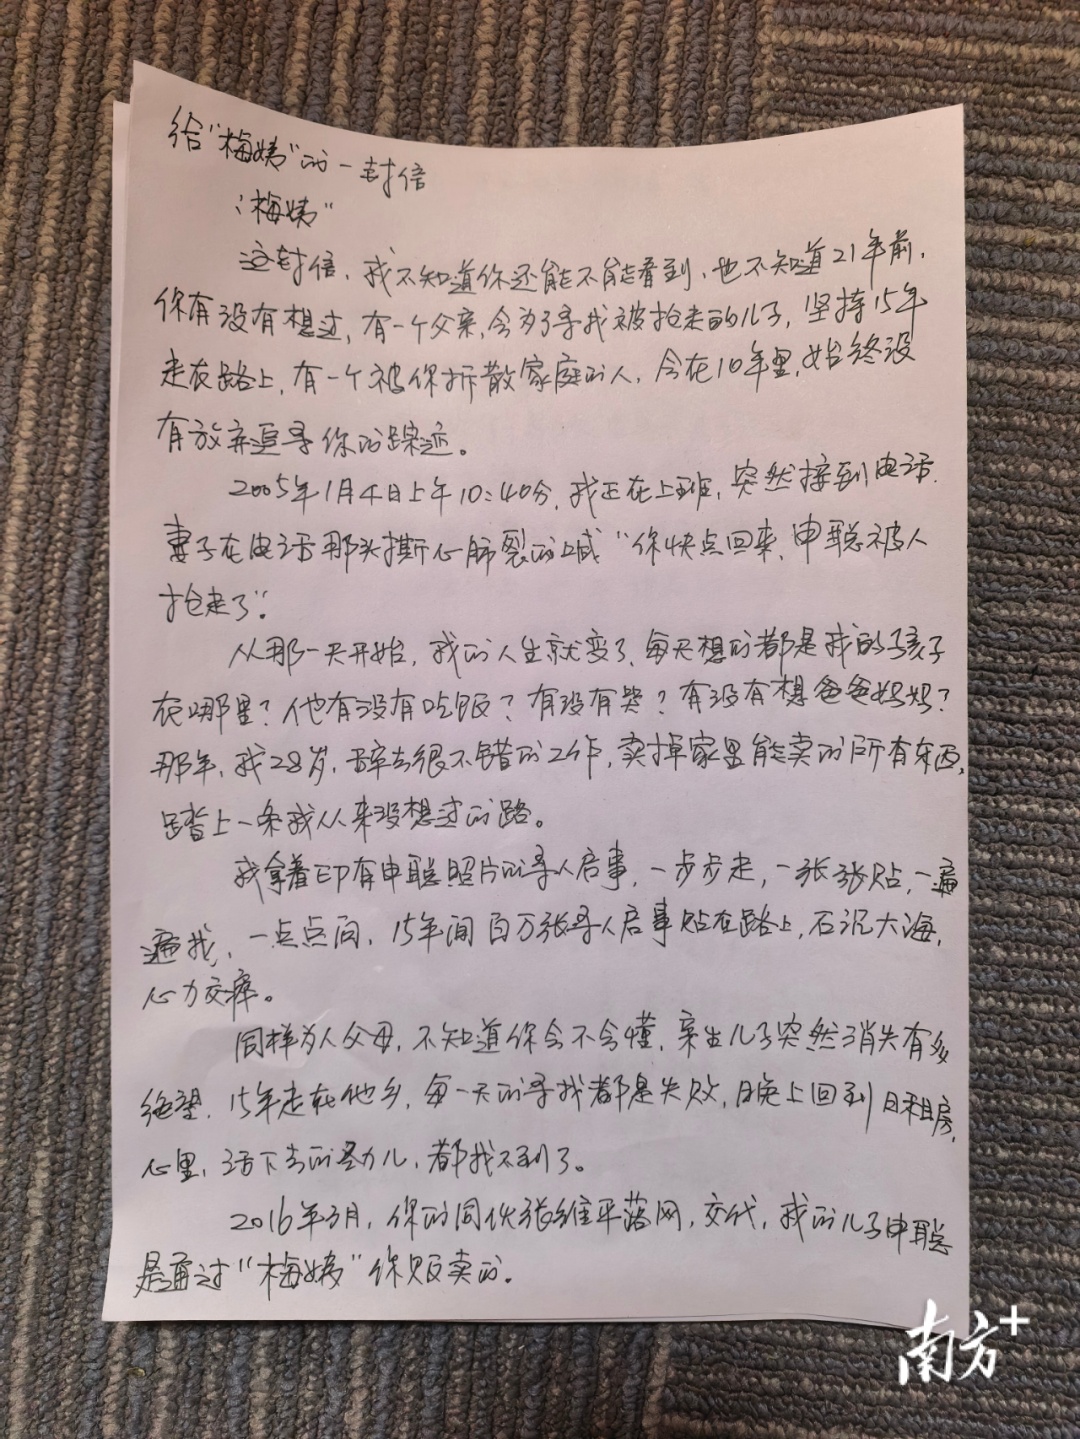 给"梅姨"的一封信
"梅姨"
这封信，我不知道你还能不能看到，也不知道21年前，
你有没有想过，有一个父亲，会为了寻找被抢走的儿子，坚持15年
走在路上，有一个被你拆散家庭的人，会在10年里，始终没
有放弃追寻你的踪迹。
2005年1月4日上午10:40分，我正在上班，突然接到电话，
妻子在电话那头撕心肺裂的喊"你快点回来，申聪被人
抢走了"。
从那一天开始，我的人生就变了，每天想的都是我的孩子
在哪里？他有没有吃饭？有没有哭？有没有想爸爸妈妈？
那年，我28岁，辞去很不错的工作，卖掉家里能卖的所有东西，
踏上一条我从来没想过的路。
我拿着印有申聪照片的寻人启事，一步步走，一张张贴，一遍
遍找，一点点问，15年间百万张寻人启事贴在路上，石沉大海，
心力交瘁。
同样为人父母，不知道你会不会懂，亲生儿子突然消失有多
绝望，15年走在他乡，每一天的寻找都是失败，晚上回到日租房，
心里，活下去的劲儿，都找不到了。
2016年3月，你的同伙张维平落网，交代，我的儿子申聪
是通过"梅姨"你贩卖的。
南方+